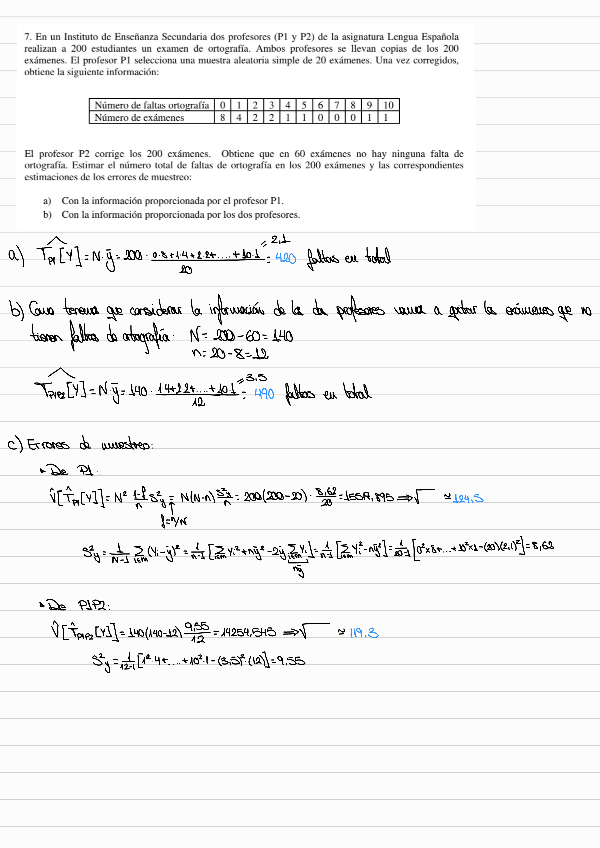 7. En un Instituto de Enseñanza Secundaria dos profesores (P1 y P2) de la asignatura Lengua Española
realizan a 200 estudiantes un examen de ortografía. Ambos profesores se llevan copias de los 200
exámenes. El profesor P1 selecciona una muestra aleatoria simple de 20 exámenes. Una vez corregidos,
obtiene la siguiente información:
Número de faltas ortografía 0 1 2 3 4 5 6 7 8 9 10
Número de exámenes 8 4 2 2 1 1 0 0 0 1 1
El profesor P2 corrige los 200 exámenes. Obtiene que en 60 exámenes no hay ninguna falta de
ortografía. Estimar el número total de faltas de ortografía en los 200 exámenes y las correspondientes
estimaciones de los errores de muestreo:
a) Con la información proporcionada por el profesor P1.
b) Con la información proporcionada por los dos profesores.
a) T̂_P1[Y] = N·ȳ = 200 · (0·8+1·4+2·2+....+10·1)/20 = 420 faltas en total
= 2,1
b) Como tenemos que considerar la información de los dos profesores vamos a quitar los exámenes que no
tienen faltas de ortografía: N = 200-60 = 140
n = 20-8 = 12
T̂_P1P2[Y] = N·ȳ = 140 · (1·4+2·2+....+10·1)/12 = 490 faltas en total
= 3,5
c) Errores de muestreo:
• De P1:
V̂[T̂_P1[Y]] = N² (1-f)/n S²y = N(N-n) S²y/n = 200(200-20) · 8,62/20 = ⟹ √ ≈ 124,5
f=n/N
S²y = 1/(n-1) Σ(Yi-ȳ)² = 1/(n-1) [ΣYi²+nȳ²-2ȳΣYi] = 1/(n-1) [ΣYi²-nȳ²] = 1/(20-1) [0²×8+...+10²×1-(20)(2,1)²] = 8,62
nȳ
• De P1P2:
V̂[T̂_P1P2[Y]] = 140(140-12) 9,55/12 = 14254,545 ⟹ √ ≈ 119,3
S²y = 1/(12-1) [1²·4+....+10²·1-(3,5)²·(12)] = 9,55